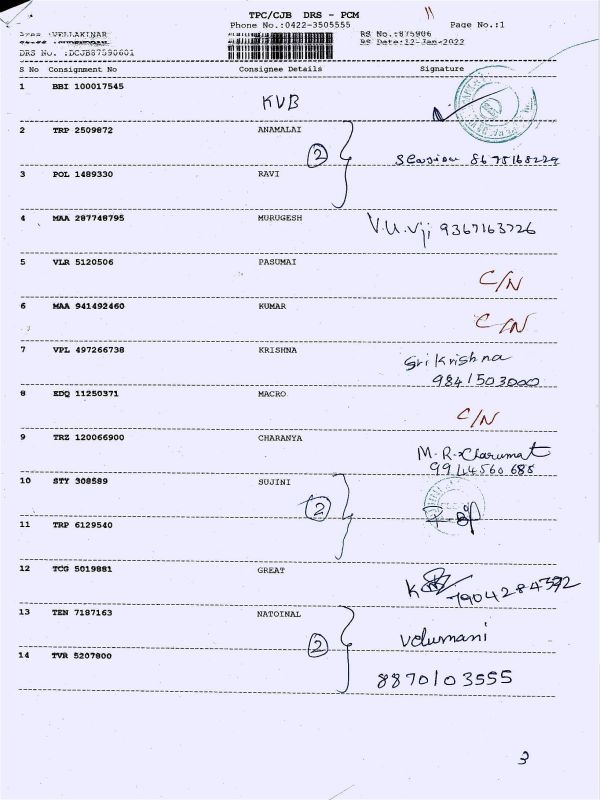 TPC/CJB DRS - PCM
Phone No.:0422-3505555 Page No.:1
Area :VELLAKINAR RS No.:875906
RS Date:12-Jan-2022
DRS No. :DCJB87590601
S No Consignment No Consignee Details Signature
1 BBI 100017545
KVB
2 TRP 2509872 ANAMALAI
2
3 POL 1489330 RAVI
4 MAA 287748795 MURUGESH
V.U.Vji 9367163726
5 VLR 5120506 PASUMAI
C/N
6 MAA 941492460 KUMAR
C/N
7 VPL 497266738 KRISHNA
Sri Krishna
9841503000
8 EDQ 11250371 MACRO
C/N
9 TRZ 120066900 CHARANYA
M.R.
9944560685
10 STY 308589 SUJINI
2
11 TRP 6129540
12 TCG 5019881 GREAT
7904284392
13 TEN 7187163 NATOINAL
Velumani
2
14 TVR 5207800
8870103555
3